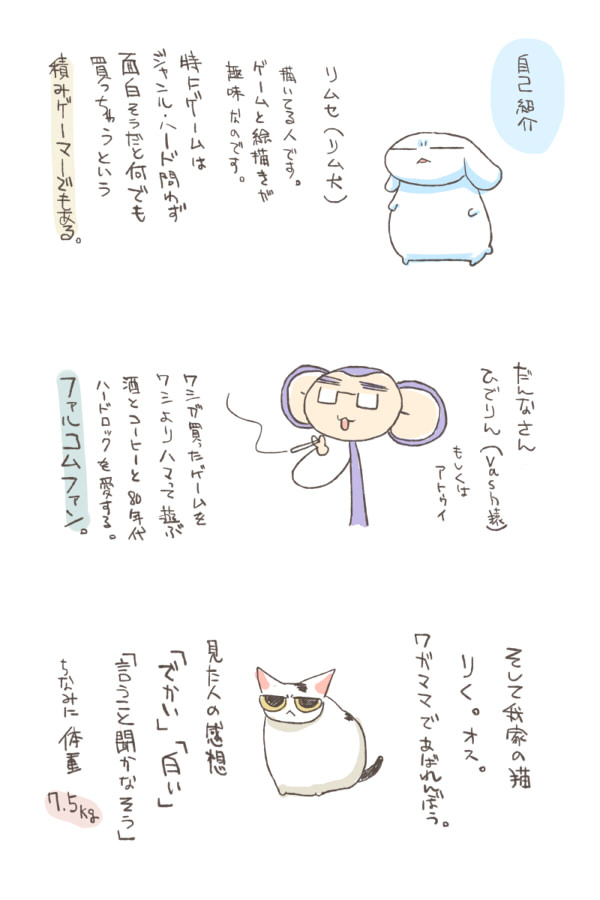 自己紹介
リムセ(リム犬)
描いてる人です。
ゲームと絵描きが
趣味なのです。
特にゲームは
ジャンル・ハード問わず
面白そうだと何でも
買っちゃうという
積みゲーマーでもある。
だんなさん
ひでりん(Vash猿)
もしくは
アトゥイ
ワシが買ったゲームを
ワシよりハマって遊ぶ
酒とコーヒーと80年代
ハードロックを愛する。
ファルコムファン。
そして我家の猫
りく。オス。
ワガママであばれんぼう。
見た人の感想
「でかい」「白い」
「言うこと聞かなそう」
ちなみに体重
7.5kg